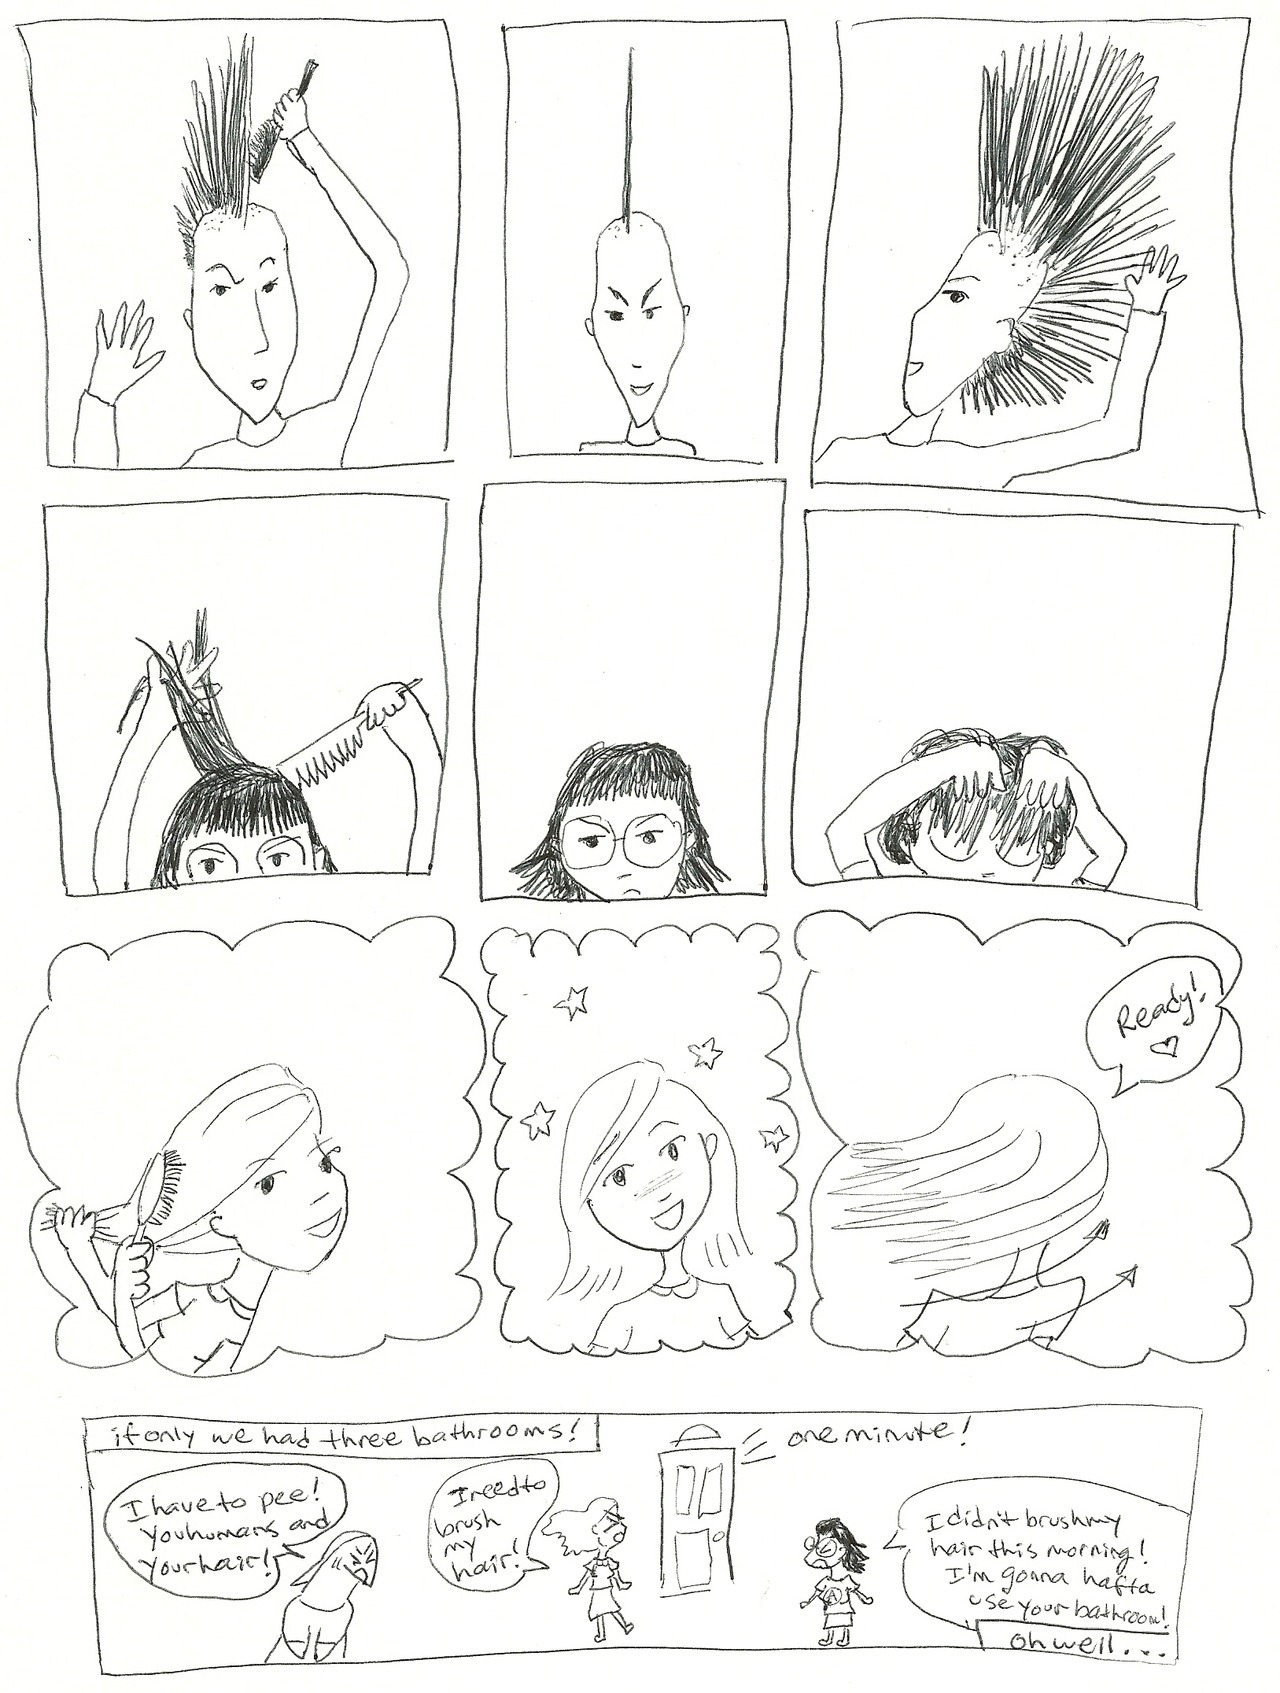 Ready!
♡
if only we had three bathrooms!
one minute!
I have to pee!
You humans and
your hair!
I need to
brush
my
hair!
I didn't brush my
hair this morning!
I'm gonna hafta
use your bathroom!
oh well...
A